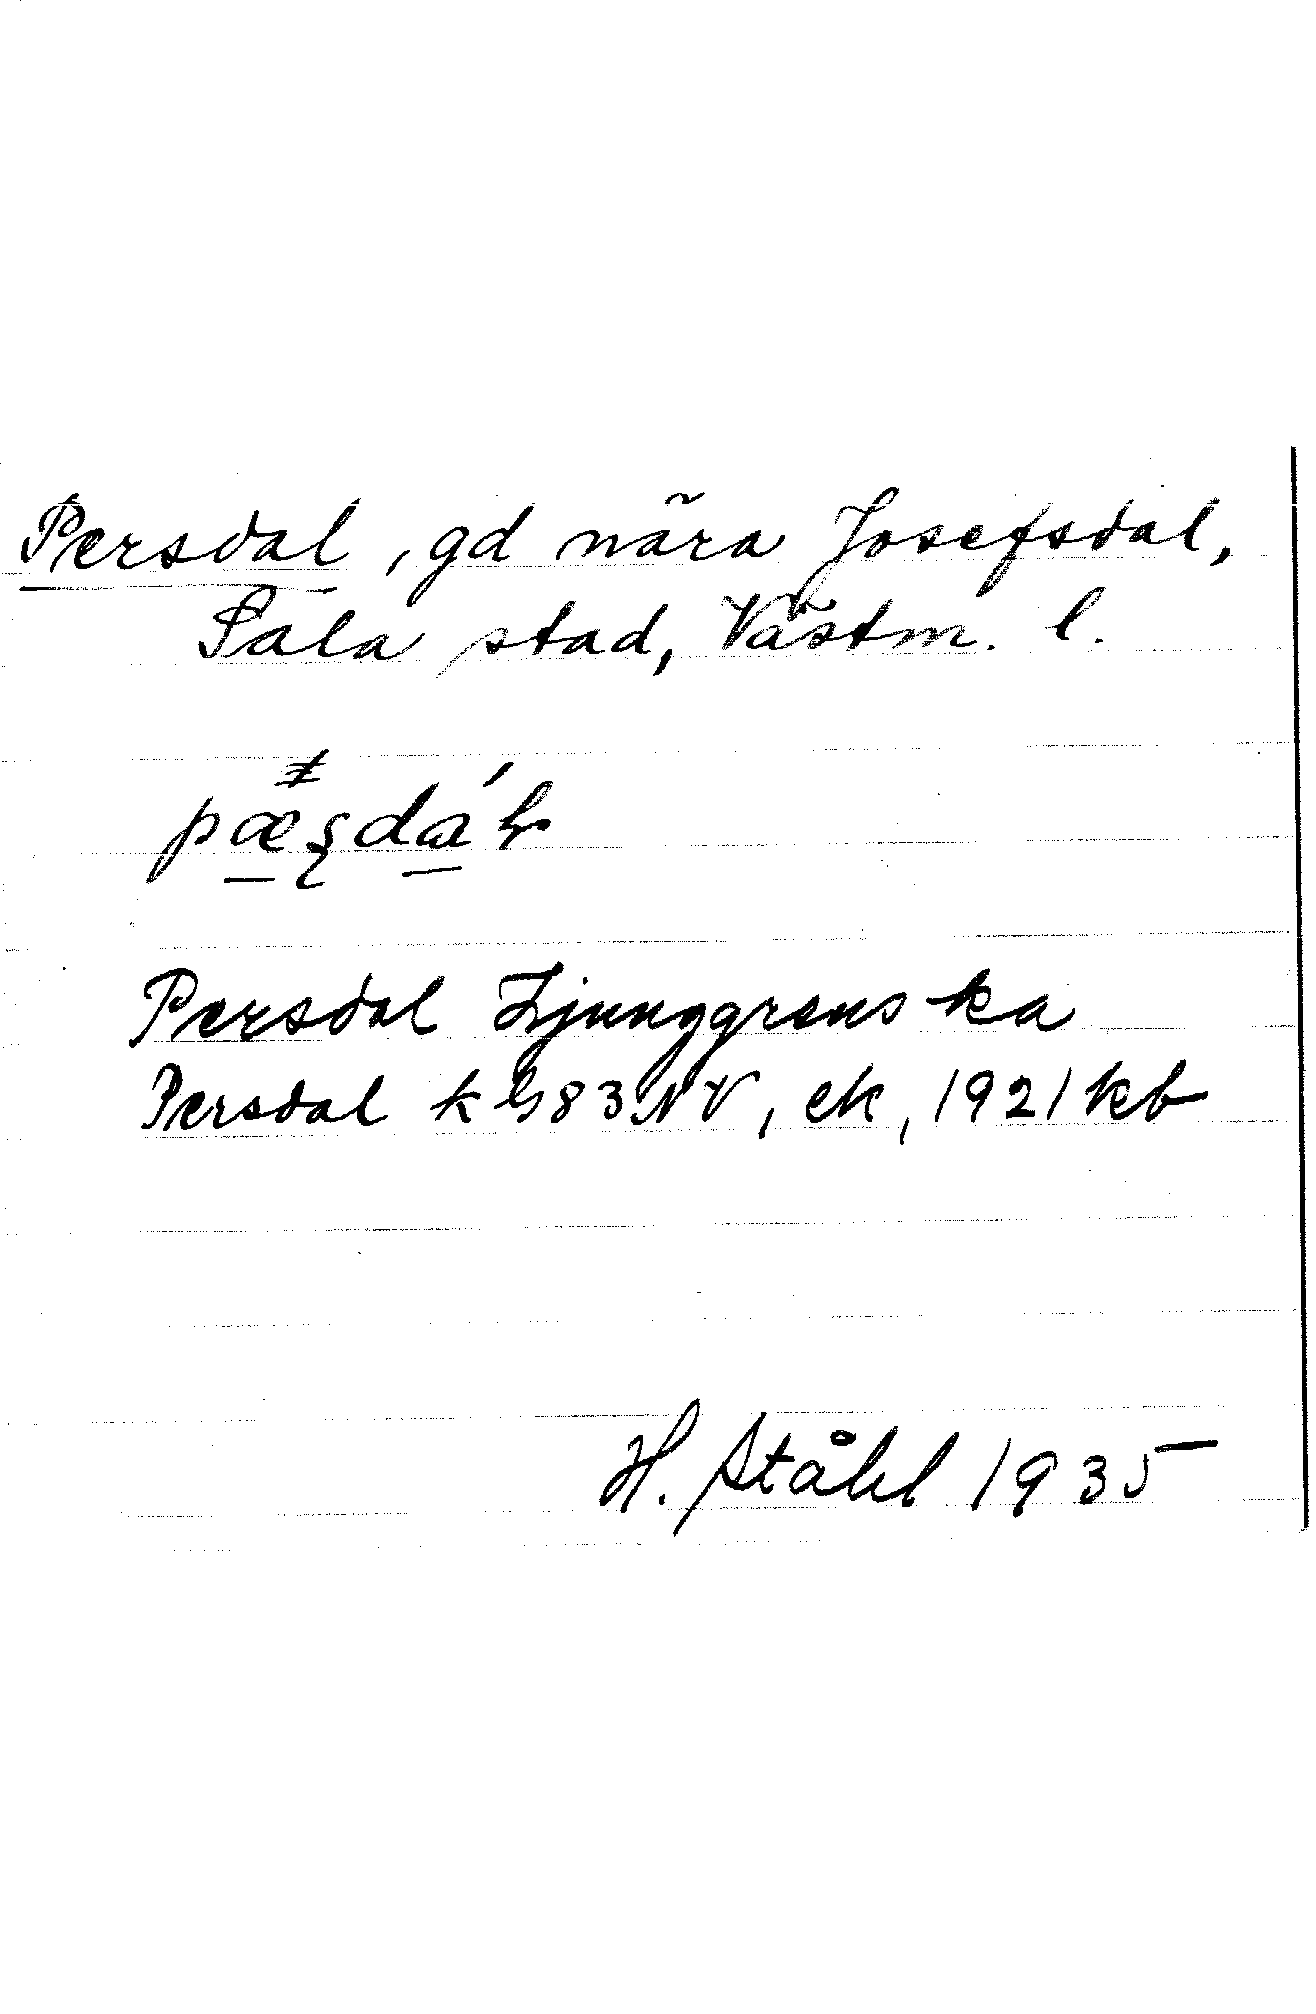 Persdal, gd nära Josefsdal,
Sala stad, Västm. l.
Persdal Ljunggrenska
Persdal k G83NV, ek, 1921 kb
H. Ståhl 1935